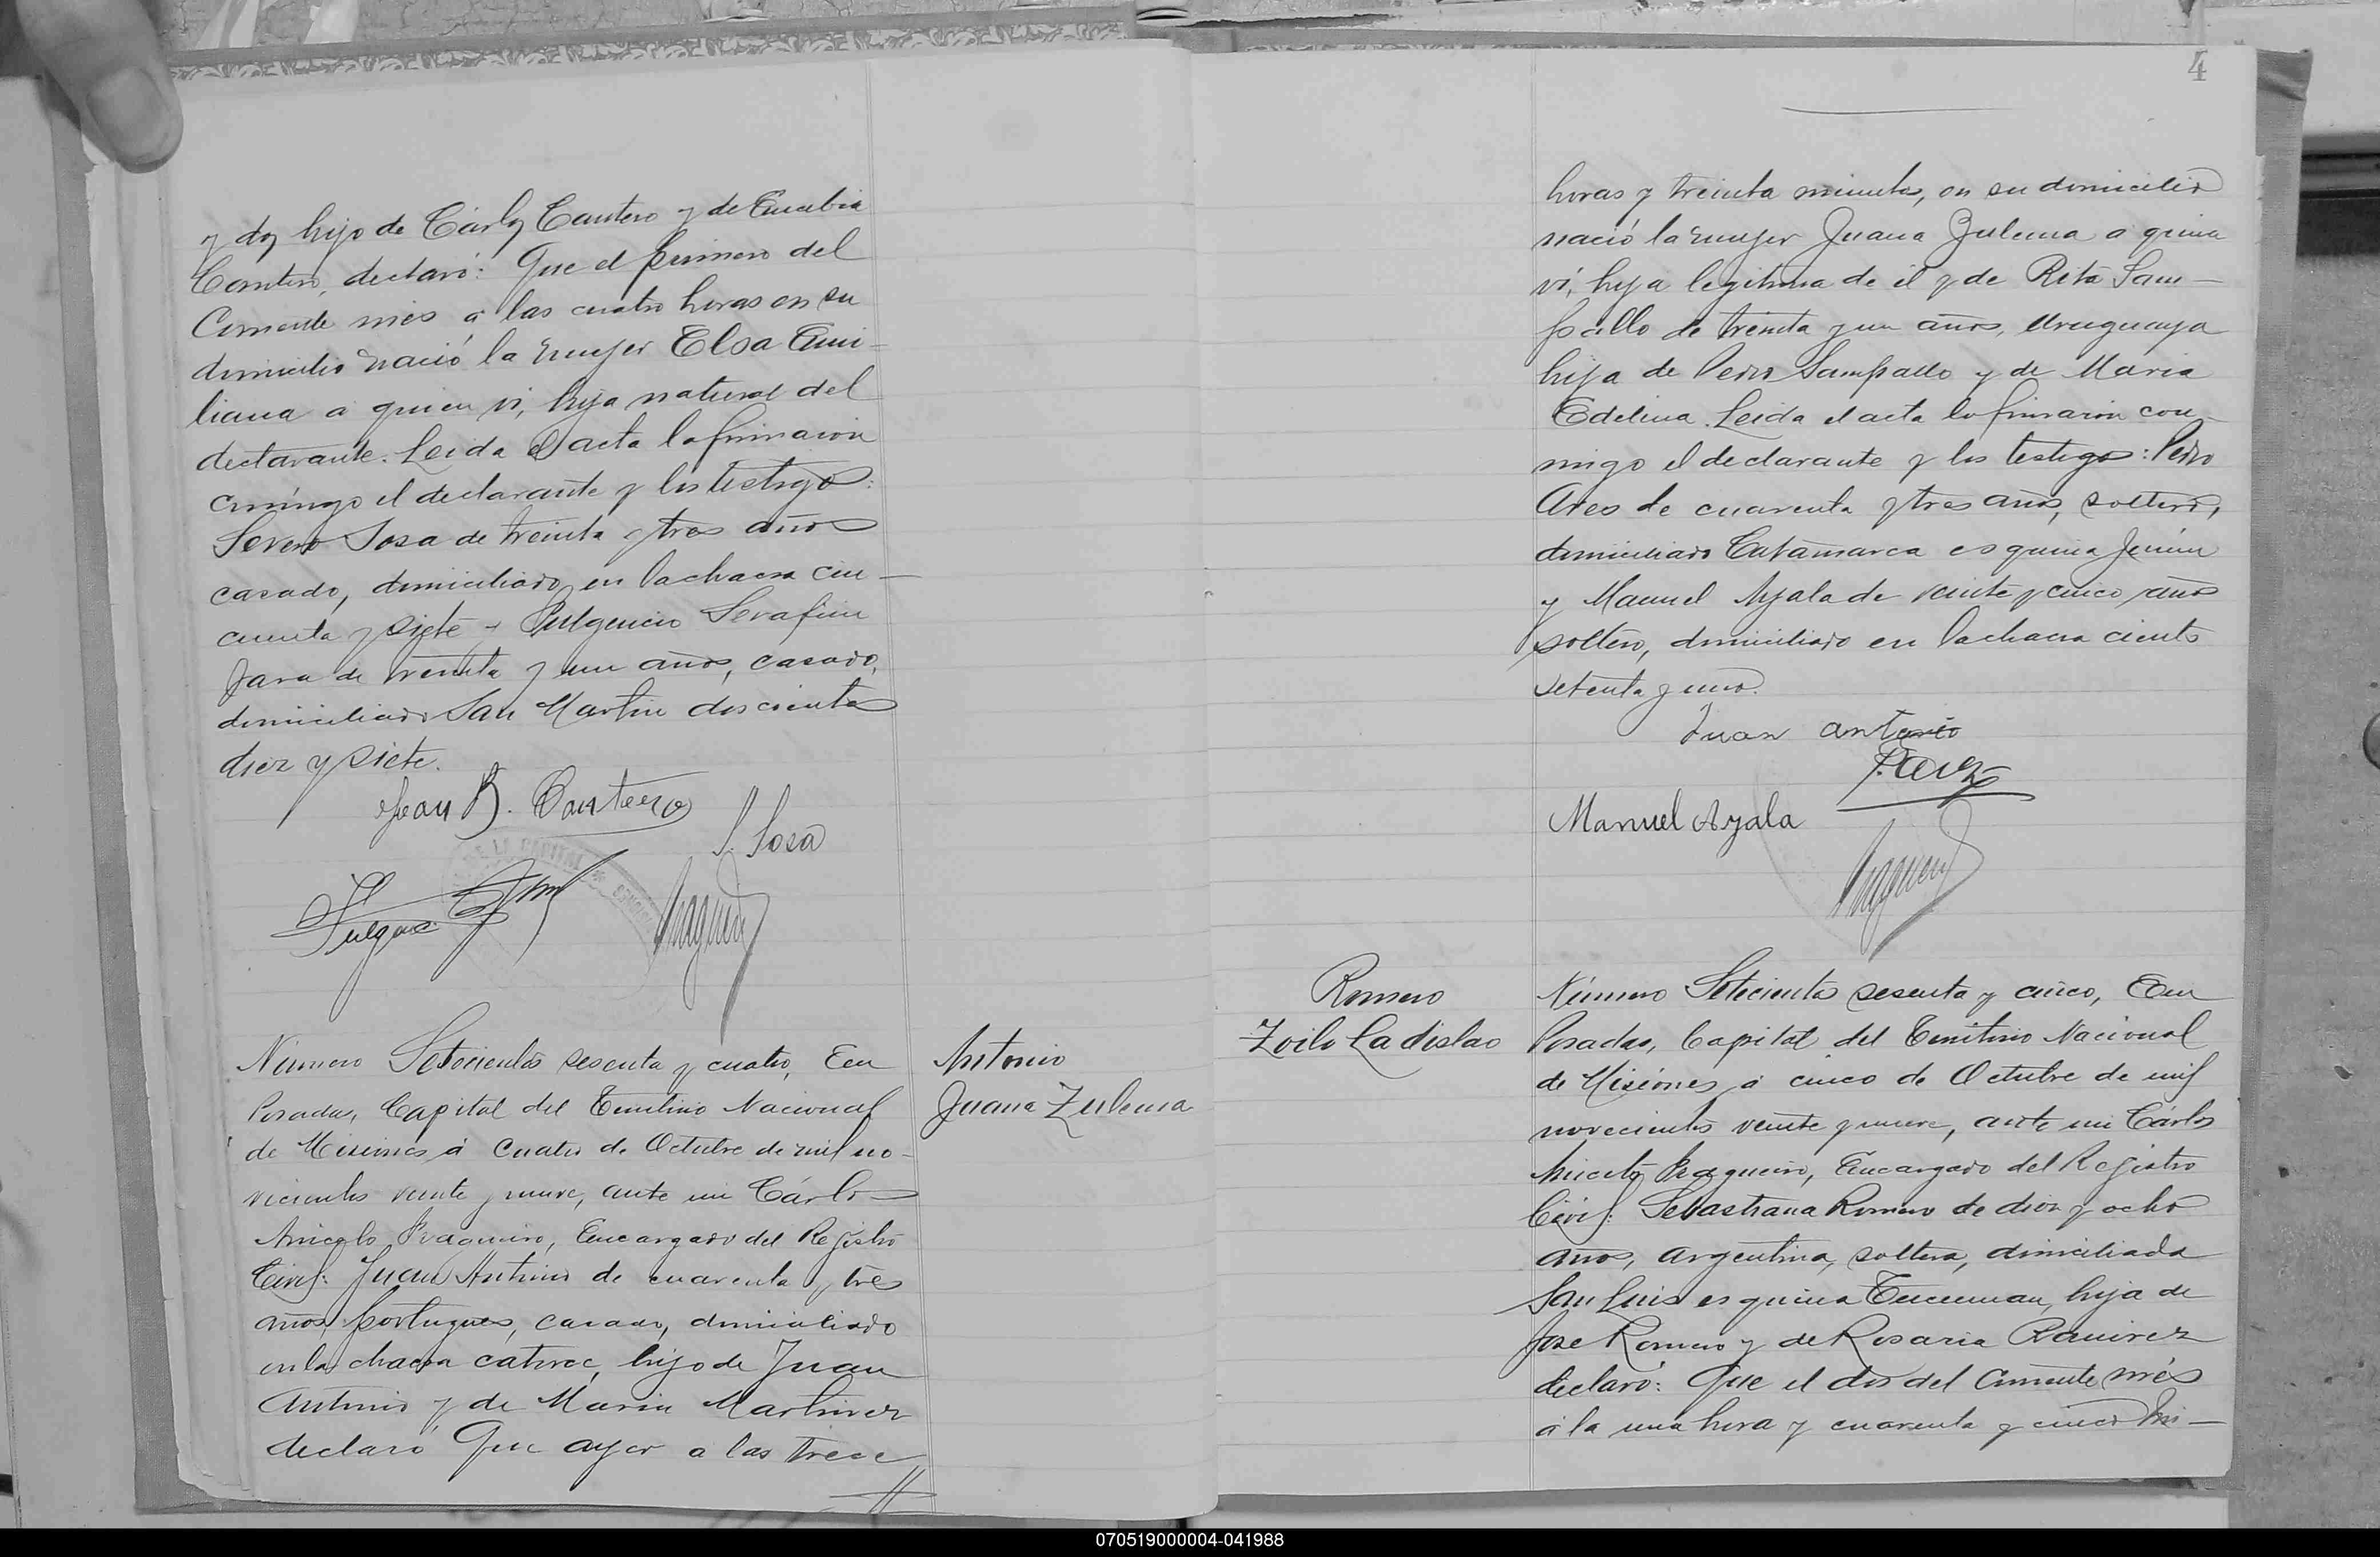 y dos hijo de Cárlos Cantero y de Eusebia
Cantero, declaró: Que el primero del
Corriente més á las cuatro horas en su
domicilio nació la mujer Elsa Emi-
liana a quien ví, hija natural del
declarante. Leida el acta la firmaron
conmigo el declarante y los testigos:
Severo Sosa de treinta y tres años
casado, domiciliado en la chacra cin-
cuenta y siete y Fulgencio Serafin
Jara de treinta y un años, casado,
domiciliado San Martin doscientos
diez y siete.
Juan B. Cantero
S. Sosa
Fulgencio
Número Setecientos sesenta y cuatro, En
Posadas, Capital del Territorio Nacional
de Misiones á cuatro de Octubre de mil no-
vecientos veinte y nueve, ante mi Cárlos
Aniceto, Encargado del Registro
Civil: Juan Antonio de cuarenta y tres
años, portugues, casado, domiciliado
en la chacra catorce, hijo de Juan
Antonio y de Maria Martinez
declaró Que ayer a las trece
Antonio
Juana Zulema
4
horas y treinta minutos, en su domicilio
nació la mujer Juana Zulema a quien
ví, hija legitima de él y de Rita Sam-
pallo de treinta y un años, Uruguaya
hija de Pedro Sampallo y de Maria
Edelina. Leida el acta la firmaron con-
migo el declarante y los testigos: Pedro
Ares de cuarenta y tres años, soltero,
domiciliado Catamarca esquina Junin
y Manuel Ayala de veinte y cinco años
soltero, domiciliado en la chacra ciento
setenta y uno.
Juan antonio
Manuel Ayala
Romero
Zoilo Ladislao
Número Setecientos sesenta y cinco, En
Posadas, Capital del Territorio Nacional
de Misiones á cinco de Octubre de mil
novecientos veinte y nueve, ante mi Cárlos
Aniceto, Encargado del Registro
Civil: Sebastiana Romero de diez y ocho
años, argentina, soltera, domiciliada
San Luis esquina Tucuman, hija de
José Romero y de Rosaria Ramirez
declaró: Que el dos del corriente més
á la una hora y cuarenta y cinco mi-
070519000004-041988